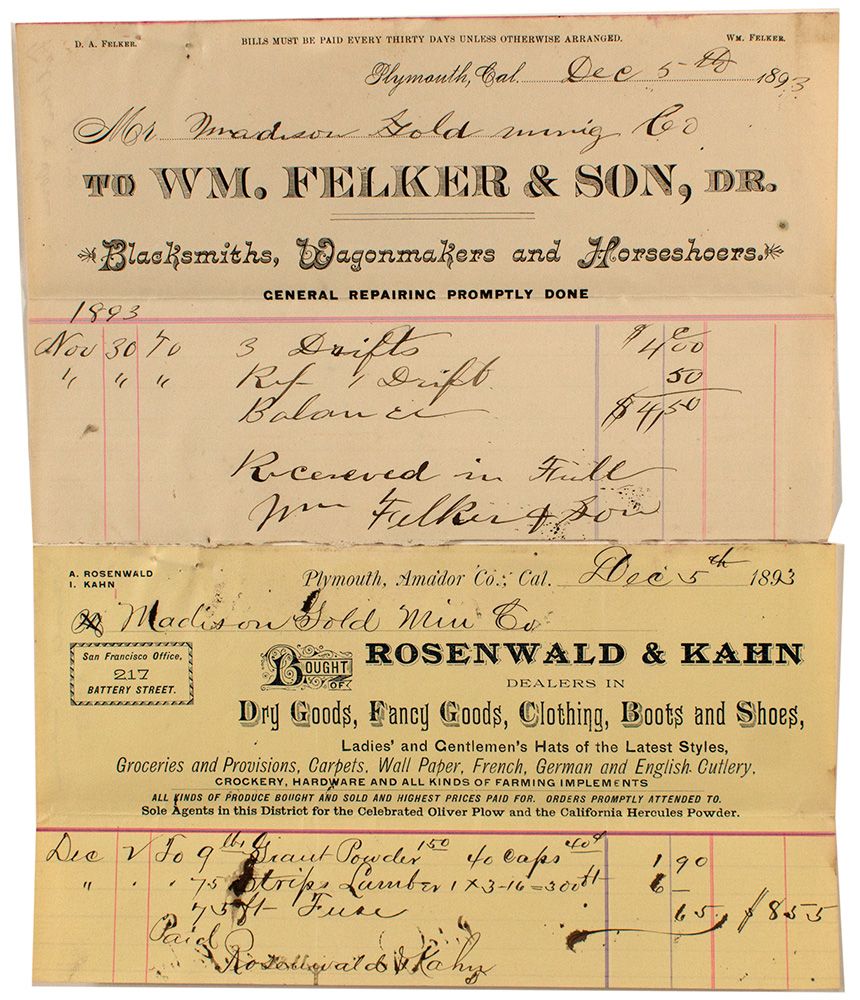 D. A. FELKER. BILLS MUST BE PAID EVERY THIRTY DAYS UNLESS OTHERWISE ARRANGED. WM. FELKER.
Plymouth, Cal. Dec 5th 1893
Mr Madison Gold Co
TO WM. FELKER & SON, DR.
Blacksmiths, Wagonmakers and Horseshoers.
GENERAL REPAIRING PROMPTLY DONE
1893
Nov 30 To 3 Drifts $4.00
" " " 1 Drift 50
Balance $4,50
Received in Full
Wm Felker & Son
A. ROSENWALD
I. KAHN
Plymouth, Amador Co., Cal. Dec 5th 1893
M Madison Gold Min Co
San Francisco Office,
217
BATTERY STREET.
BOUGHT OF ROSENWALD & KAHN
DEALERS IN
Dry Goods, Fancy Goods, Clothing, Boots and Shoes,
Ladies' and Gentlemen's Hats of the Latest Styles,
Groceries and Provisions, Carpets, Wall Paper, French, German and English Cutlery,
CROCKERY, HARDWARE AND ALL KINDS OF FARMING IMPLEMENTS
ALL KINDS OF PRODUCE BOUGHT AND SOLD AND HIGHEST PRICES PAID FOR. ORDERS PROMPTLY ATTENDED TO.
Sole Agents in this District for the Celebrated Oliver Plow and the California Hercules Powder.
Dec 2 To 9 lbs Giant Powder 150 40 Caps 40¢ 1 90
" " 75 Strips Lumber 1 x 3-16 = 300 ft 6 –
75 ft Fuse 65 $8 55
Paid
Rosenwald & Kahn